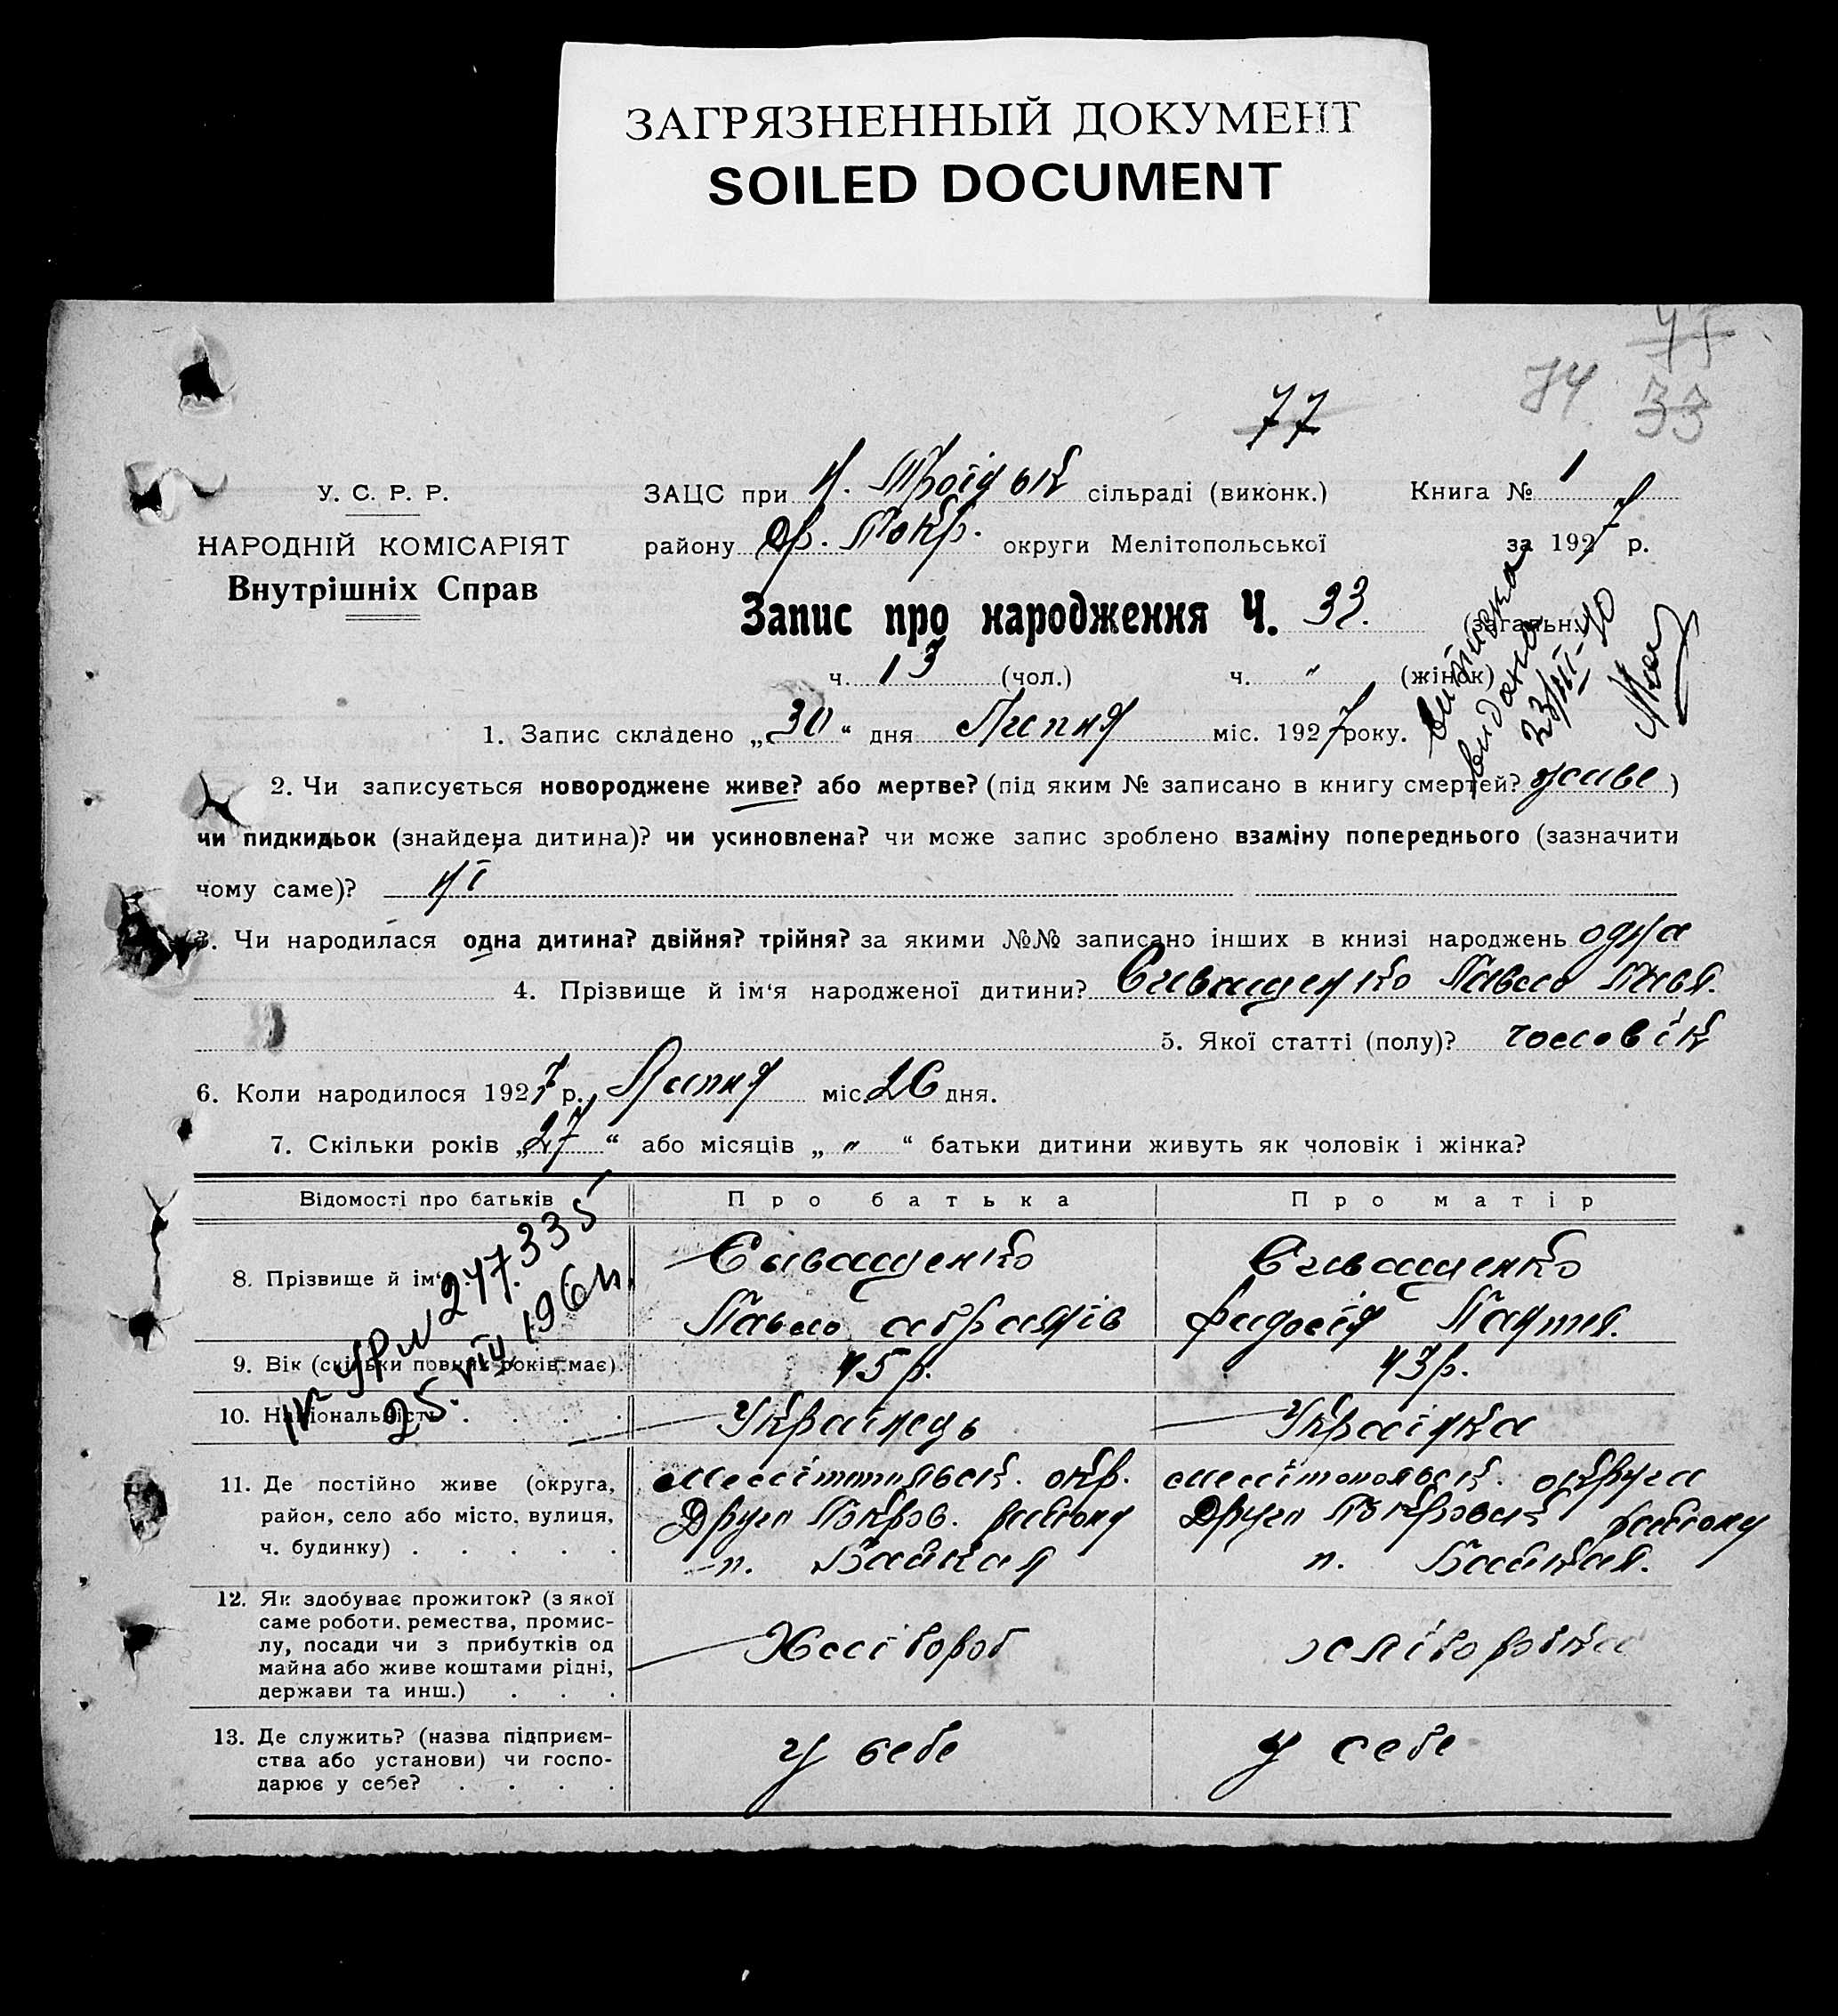 ЗАГРЯЗНЕННЫЙ ДОКУМЕНТ
SOILED DOCUMENT
74 33
77
У. С. Р. Р.
НАРОДНІЙ КОМІСАРІЯТ
Внутрішніх Справ
ЗАЦС при Н. Троїцьк сільраді (виконк.) Книга № 1
району Др. Покр. округи Мелітопольської за 1927 р.
Запис про народження Ч. 33. (загальн.)
ч. 13 (чол.) ч. " (жінок)
виписка
видана
23/III-40
1. Запис складено „30“ дня Липня міс. 1927 року.
2. Чи записується новороджене живе? або мертве? (під яким № записано в книгу смертей? живе)
чи пидкидьок (знайдена дитина)? чи усиновлена? чи може запис зроблено взаміну попереднього (зазначити
чому саме)? ні
3. Чи народилася одна дитина? двійня? трійня? за якими №№ записано інших в книзі народжень одна
4. Прізвище й ім‘я народженої дитини? Сиващенко Павло Павл.
5. Якої статті (полу)? чоловік
6. Коли народилося 1927 р. Липня міс. 26 дня.
7. Скільки років „27“ або місяців „ " “ батьки дитини живуть як чоловік і жінка?
Відомості про батьків Про батька Про матір
8. Прізвище й ім‘я Сиващенко Сиващенко
Павло Абрамів Фидосія Пантел.
247.335
25. VIII 1964.
9. Вік (скільки повних років має). 45 р. 43 р.
10. Національність . . . . Українець Українка
11. Де постійно живе (округа, район, село або місто, вулиця, ч. будинку) . . . . .
Мелітопольськ. окр. Мелітопольськ. округи
Друго Покров. району Друго Покровськ району
п. Байкал п. Байкал.
12. Як здобуває прожиток? (з якої
саме роботи, ремества, промис-
лу, посади чи з прибутків од
майна або живе коштами рідні,
держави та инш.) . . .
Хлібороб хліборобка
13. Де служить? (назва підприєм-
ства або установи) чи госпо-
дарює у себе? . . . .
у себе у себе